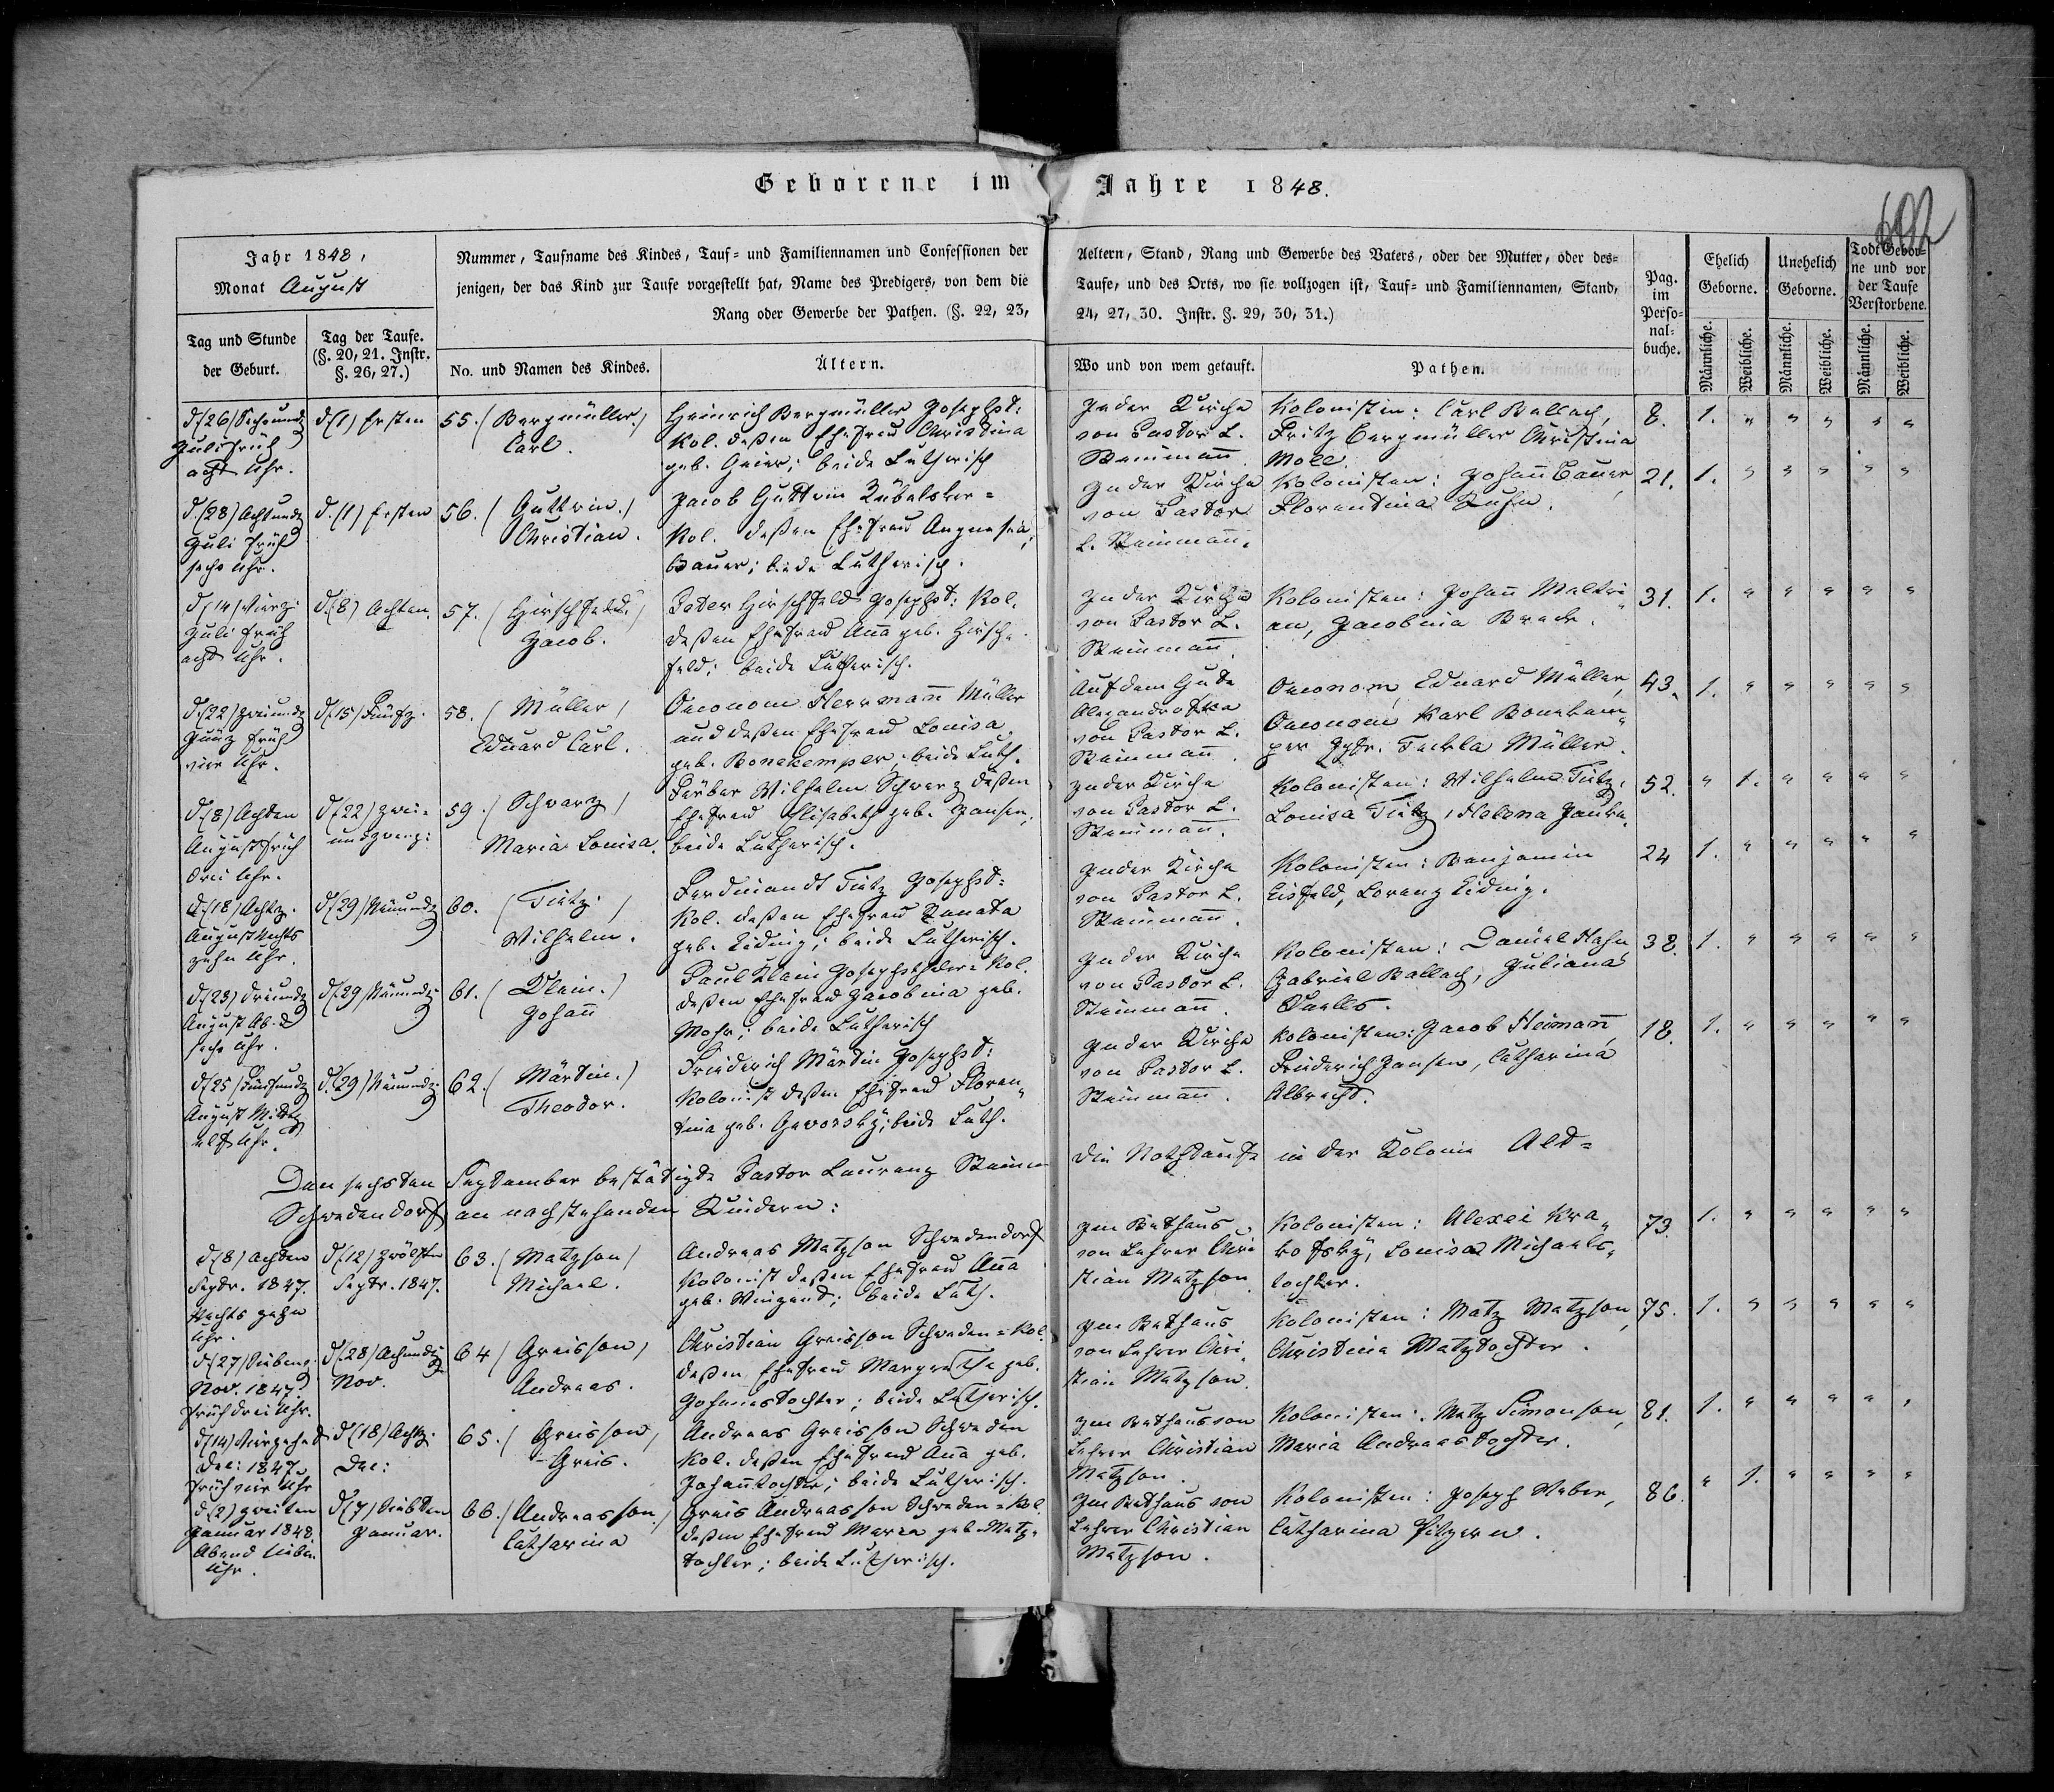 Geborene im Jahre 1848.
692
Jahr 1848,
Monat August
Nummer, Taufname des Kindes, Tauf= und Familiennamen und Confessionen der
jenigen, der das Kind zur Taufe vorgestellt hat, Name des Predigers, von dem die
Rang oder Gewerbe der Pathen. (§. 22, 23,
Aeltern, Stand, Rang und Gewerbe des Vaters, oder der Mutter, oder des=
Taufe, und des Orts, wo sie vollzogen ist, Tauf= und Familiennamen, Stand,
24, 27, 30. Instr. §. 29, 30, 31.)
Pag.
im
Perso=
nal=
buche.
Ehelich
Geborne.
Unehelich
Geborne.
Todt Gebor=
ne und vor
der Taufe
Verstorbene.
Tag und Stunde
der Geburt.
Tag der Taufe.
(§. 20, 21. Instr.
§. 26, 27.)
No. und Namen des Kindes.
Ältern.
Wo und von wem getauft.
Pathen.
Männliche.
Weibliche.
Männliche.
Weibliche.
Männliche.
Weibliche.
d. (26) Sechsundz
Juli früh
acht Uhr.
d (1) Ersten
55. (Bergmüller)
Carl.
Heinrich Bergmüller Josephst:
Kol. deßen Ehefrau Christina
geb. Geier; beide Lutherisch
In der Kirche
von Pastor L.
Steinmañ
Kolonisten: Carl Ballach,
Fritz Bergmüller Christina
Moll.
8. 1. " " " " "
d. (28) Achtundz
Juli früh
sechs Uhr.
d. (1) Ersten
56. (Guttwin.)
Christian.
Jacob Guttwin Rübalsker=
Kol. deßen Ehefrau Angnesia,
Bauer; beide Lutherisch.
In der Kirche
von Pastor
L. Steinmañ.
Kolonisten: Johañ Bauer,
Florentina Kuhn.
21. 1. " " " " "
d (14) Vierz:
Juli früh
acht Uhr.
d. (8) Achten.
57. (Hirschfeld)
Jacob.
Peter Hirschfeld Josephst: Kol.
deßen Ehefrau Aña geb. Hirsch=
feld; beide Lutherisch.
In der Kirche
von Pastor L.
Steinmañ.
Kolonisten: Johañ Maltri
an, Jacobina Brede.
31. 1. " " " " "
d. (22) Zweiundz
früh
vier Uhr.
d (15) Fünfz.
58. (Müller)
Eduard Carl.
Oeconom Herrmañ Müller
und deßen Ehefrau Louisa
geb. Bonekemper; beide Luth.
Auf dem Gute
Alexandrofka
von Pastor L.
Steinmañ.
Oeconom Eduard Müller,
Oeconom Karl Bonekem=
per Jgfr. Teckla Müller.
43. 1. " " " " "
d. (8) Achten
August früh
drei Uhr.
d (22) Zwei=
undzwanz:
59. (Schwarz)
Maria Louisa.
Färber Wilhelm Schwarz deßen
Ehefrau Elisabeth geb. Jansen;
beide Lutherisch.
In der Kirche
von Pastor L.
Steinmañ.
Kolonisten: Wilhelm Tietz,
Louisa Tietz, Helena Janke.
52. " 1. " " " "
d. (18) Achtz.
August Nachts
zehn Uhr.
d (29) Neunundz
60. (Tietz.)
Wilhelm.
Ferdinandt Tietz Josephst=
Kol. deßen Ehefrau Renata
geb. Eiding; beide Lutherisch.
In der Kirche
von Pastor L.
Steinmañ.
Kolonisten: Benjamin
Eisfeld, Lorenz Eiding.
24 1. " " " " "
d. (23) Dreiundz
August Ab.d
sechs Uhr.
d (29) Neunundz
61. (Klein.)
Johañ
Paul Klein Josephsthaler=Kol.
deßen Ehefrau Jacobina geb.
Mohr; beide Lutherisch
In der Kirche
von Pastor L.
Steinmañ.
Kolonisten: Daniel Hahn,
Gabriel Ballach, Juliana
38. 1. " " " " "
d (25) Fünfundz
August Mittg
elf Uhr.
d. (29) Neunundz
62. (Märtin.)
Theodor.
Friederich Märtin Josephst:
Kolonist deßen Ehefrau Floren=
tina geb. Gavorsky; beide Luth.
In der Kirche
von Pastor L.
Steinmañ.
Kolonisten: Jacob Heimañ,
Friederich Jansen, Catharina
Albrecht.
18. 1. " " " " "
Den sechsten September bestätigte Pastor Laurenz Steinm die Nothtaufe in der Kolonie Alt=
Schwedendorf an nachstehenden Kindern:
d (8) achten
Septr. 1847.
Nachts zehn
Uhr.
d (12) zwölften
Septr. 1847.
63. (Matzson)
Michael.
Andreas Matzson Schwedendorf
Kolonist deßen Ehefrau Aña
geb. Wiegand; beide Luth.
Im Bethaus
von Lehrer Chri
stian Matzson
Kolonisten: Alexei Kra=
kofsky, Louisa Michaels=
tochter.
73. 1. " " " " "
d (27) Siebenz.
Nov. 1847.
früh drei Uhr.
d (28) Achtundz
Nov.
64 (Greisson)
Andreas.
Christian Greisson Schweden=Kol.
deßen Ehefrau Margretha geb.
Johañestochter; beide Lutherisch.
Im Bethaus
von Lehrer Chri
stian Matzson.
Kolonisten: Matz Matzson,
Christina Matztochter.
75. 1. " " " " "
d (14) Vierzehnt
Dec: 1847.
früh vier Uhr
d (18) Achtz.
Dec:
65. (Greisson)
Greis.
Andreas Greisson Schweden
Kol. deßen Ehefrau Aña geb.
Johañtochter; beide Lutherisch.
Im Bethaus von
Lehrer Christian
Matzson.
Kolonisten: Matz Simonson,
Maria Andreastochter.
81. 1. " " " " "
d (2) zweiten
Januar 1848
Abend sieben
Uhr.
d (7) Siebten
Januar.
66. (Andreasson.)
Catharina
Greis Andreasson Schweden=Kol.
deßen Ehefrau Maria geb. Matz=
tochter; beide Lutherisch.
Im Bethaus von
Lehrer Christian
Matzson.
Kolonisten: Joseph Weber,
Catharina
86. " 1. " " " "